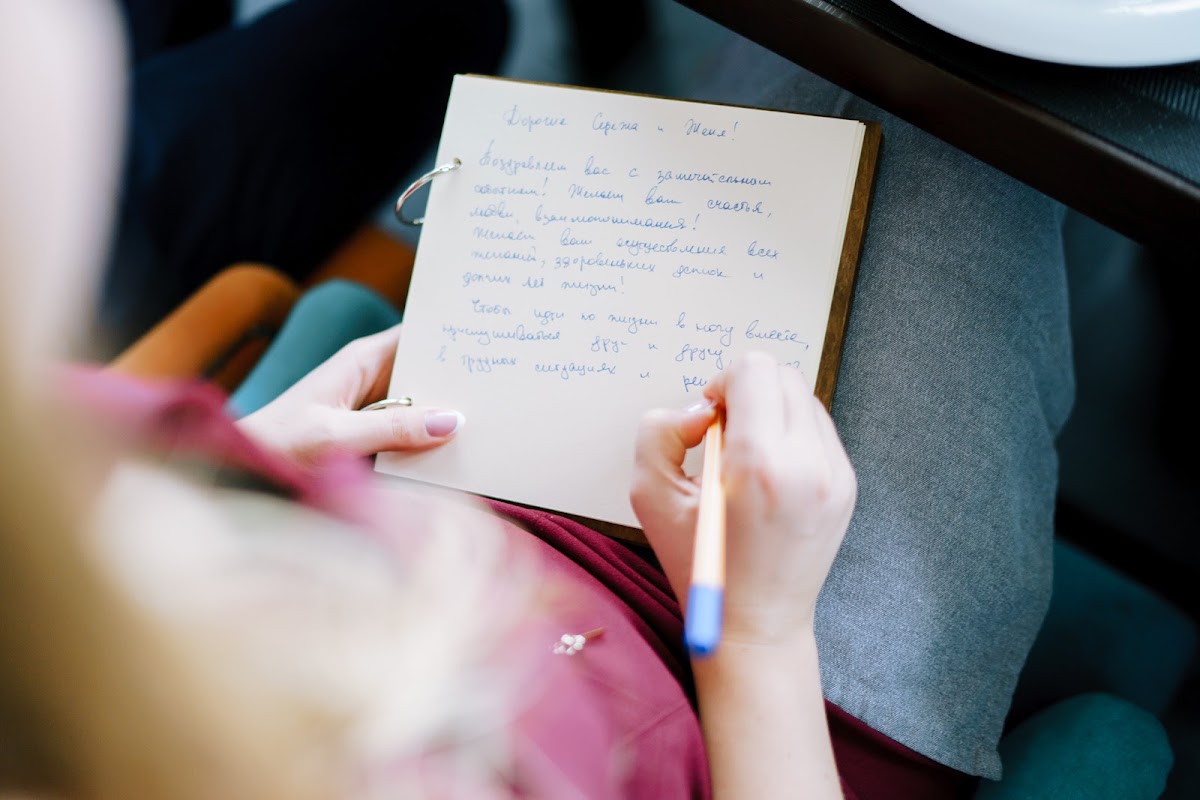 Дорогие Сережа и Женя!
Поздравляем вас с замечательным
событием! Желаем вам счастья,
любви, взаимопонимания!
Желаем вам осуществления всех
желаний, здоровеньких деток и
долгих лет жизни!
Чтобы идти по жизни в ногу вместе,
прислушиваться друг к другу,
в трудных ситуациях и